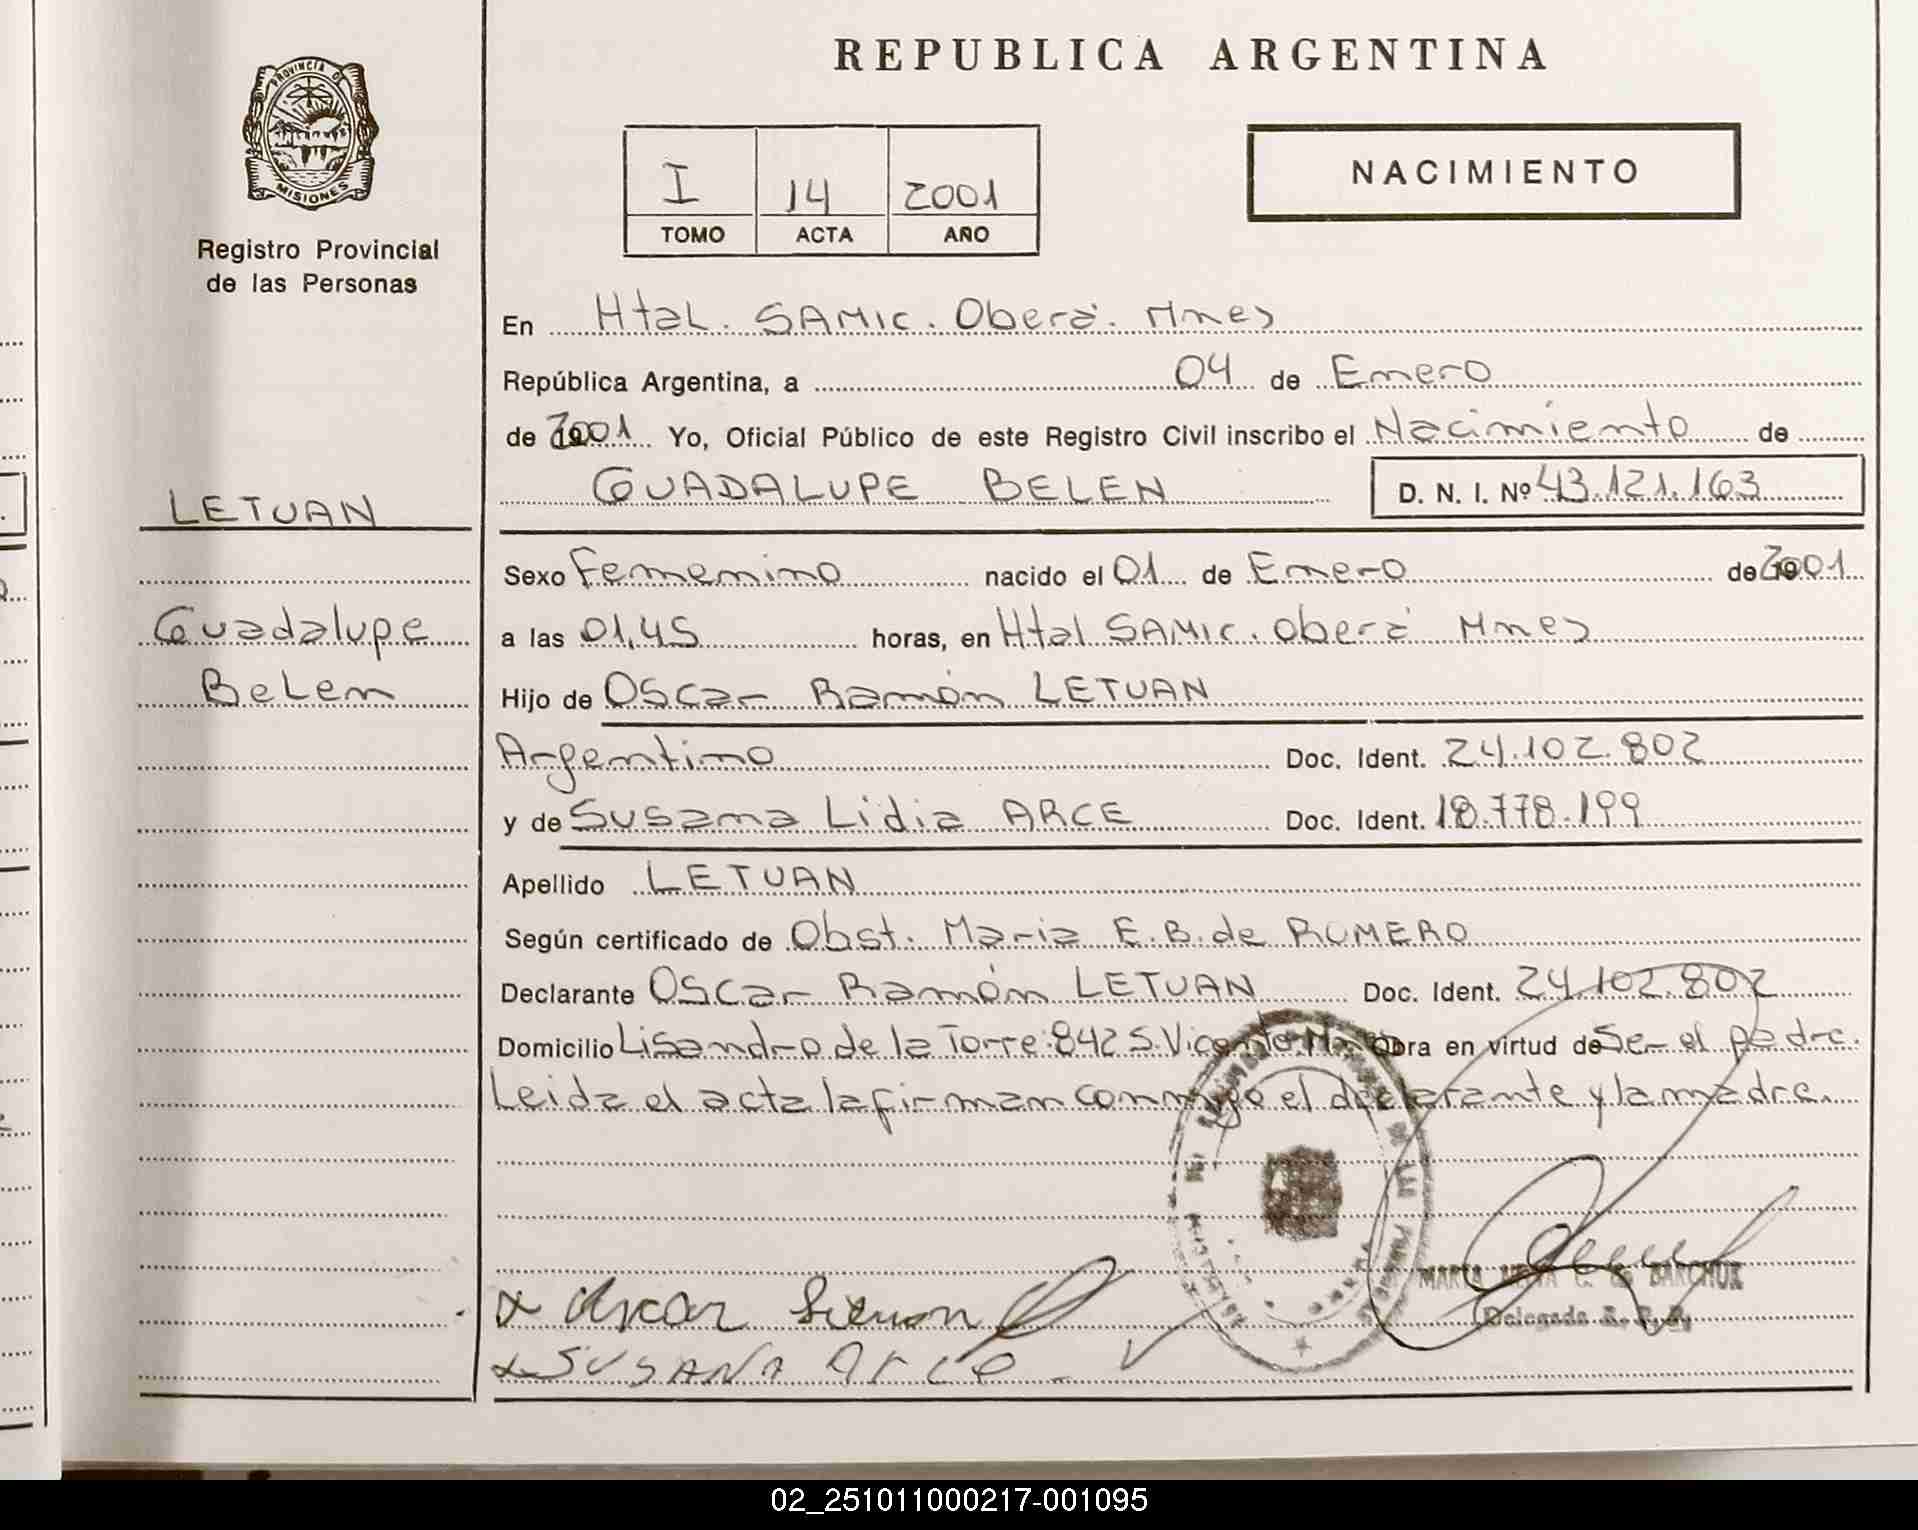 REPUBLICA ARGENTINA
PROVINCIA D
MISIONES
Registro Provincial
de las Personas
I 14 2001
TOMO ACTA AÑO
NACIMIENTO
En Htal. SAMIC. Oberá. Mnes
República Argentina, a 04 de Enero
de 2001 Yo, Oficial Público de este Registro Civil inscribo el Nacimiento de
GUADALUPE BELEN D. N. I. Nº 43.121.163
LETUAN
Guadalupe
Belen
Sexo Femenino nacido el 01 de Enero de 2001
a las 01,45 horas, en Htal SAMIC. Oberá Mnes
Hijo de Oscar Ramón LETUAN
Argentino Doc. Ident. 24.102.802
y de Susana Lidia ARCE Doc. Ident. 18.778.199
Apellido LETUAN
Según certificado de Obst. Maria E.B. de ROMERO
Declarante Oscar Ramón LETUAN Doc. Ident. 24.102.802
Domicilio Lisandro de la Torre 842 S. Vicente Obra en virtud de Ser el padre.
Leida el acta la firman conmigo el declarante y la madre.
x Oscar Letuan
x SUSANA Arce
Delegada R. P. P.
02_251011000217-001095